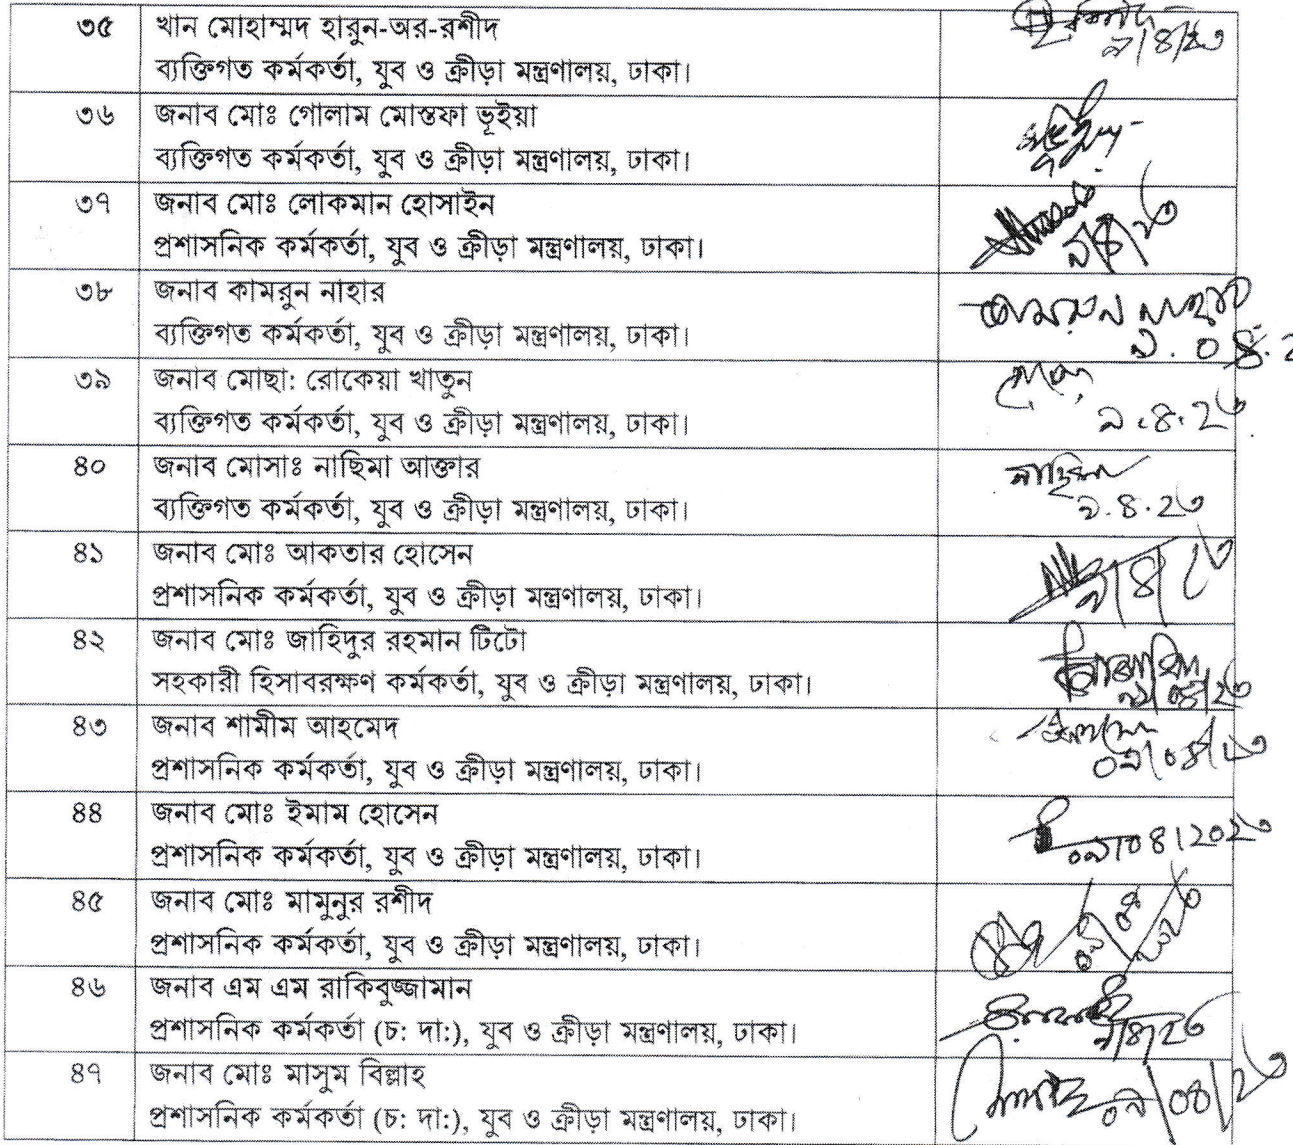 ৩৫ খান মোহাম্মদ হারুন-অর-রশীদ
৯/৪/২৩
ব্যক্তিগত কর্মকর্তা, যুব ও ক্রীড়া মন্ত্রণালয়, ঢাকা।
৩৬ জনাব মোঃ গোলাম মোস্তফা ভূইয়া
ব্যক্তিগত কর্মকর্তা, যুব ও ক্রীড়া মন্ত্রণালয়, ঢাকা।
৩৭ জনাব মোঃ লোকমান হোসাইন
প্রশাসনিক কর্মকর্তা, যুব ও ক্রীড়া মন্ত্রণালয়, ঢাকা।
৩৮ জনাব কামরুন নাহার
কামরুন নাহার
ব্যক্তিগত কর্মকর্তা, যুব ও ক্রীড়া মন্ত্রণালয়, ঢাকা।
৯.০৪.২
৩৯ জনাব মোছা: রোকেয়া খাতুন
ব্যক্তিগত কর্মকর্তা, যুব ও ক্রীড়া মন্ত্রণালয়, ঢাকা।
৯.৪.২৩
৪০ জনাব মোসাঃ নাছিমা আক্তার
নাছিমা
ব্যক্তিগত কর্মকর্তা, যুব ও ক্রীড়া মন্ত্রণালয়, ঢাকা।
৯.৪.২৩
৪১ জনাব মোঃ আকতার হোসেন
৯/৪/২৩
প্রশাসনিক কর্মকর্তা, যুব ও ক্রীড়া মন্ত্রণালয়, ঢাকা।
৪২ জনাব মোঃ জাহিদুর রহমান টিটো
সহকারী হিসাবরক্ষণ কর্মকর্তা, যুব ও ক্রীড়া মন্ত্রণালয়, ঢাকা।
৯/০৪/২৩
৪৩ জনাব শামীম আহমেদ
প্রশাসনিক কর্মকর্তা, যুব ও ক্রীড়া মন্ত্রণালয়, ঢাকা।
০৯/০৪/২৩
৪৪ জনাব মোঃ ইমাম হোসেন
প্রশাসনিক কর্মকর্তা, যুব ও ক্রীড়া মন্ত্রণালয়, ঢাকা।
০৯/০৪/২০২৩
৪৫ জনাব মোঃ মামুনুর রশীদ
প্রশাসনিক কর্মকর্তা, যুব ও ক্রীড়া মন্ত্রণালয়, ঢাকা।
৪৬ জনাব এম এম রাকিবুজ্জামান
প্রশাসনিক কর্মকর্তা (চ: দা:), যুব ও ক্রীড়া মন্ত্রণালয়, ঢাকা।
৯/৪/২৩
৪৭ জনাব মোঃ মাসুম বিল্লাহ
প্রশাসনিক কর্মকর্তা (চ: দা:), যুব ও ক্রীড়া মন্ত্রণালয়, ঢাকা।
০৯/০৪/২৩